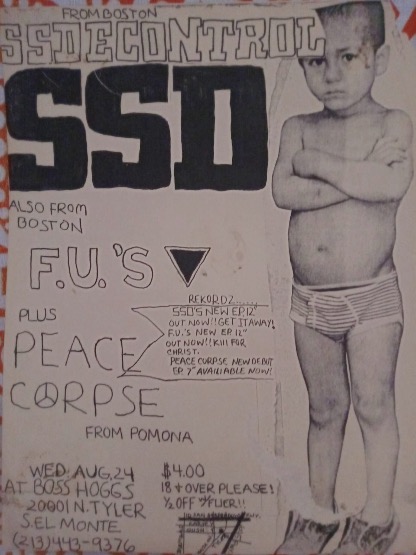 FROM BOSTON
SSDECONTROL
SSD
ALSO FROM
BOSTON
F.U.'S
REKORDZ....
PLUS
SSD'S NEW EP.12"
OUT NOW!! GET IT AWAY!
F.U.'S NEW EP. 12"
OUT NOW!! KILL FOR
CHRIST.
PEACE CORPSE NEW DEBUT
EP. 7" AVAILIABLE NOW!
PEACE
CORPSE
FROM POMONA
WED. AUG, 24
AT BOSS HOGGS
20001 N. TYLER
S. EL MONTE
(213) 443-9376
$4.00
18 & OVER PLEASE!
½ OFF W/FLIER!!